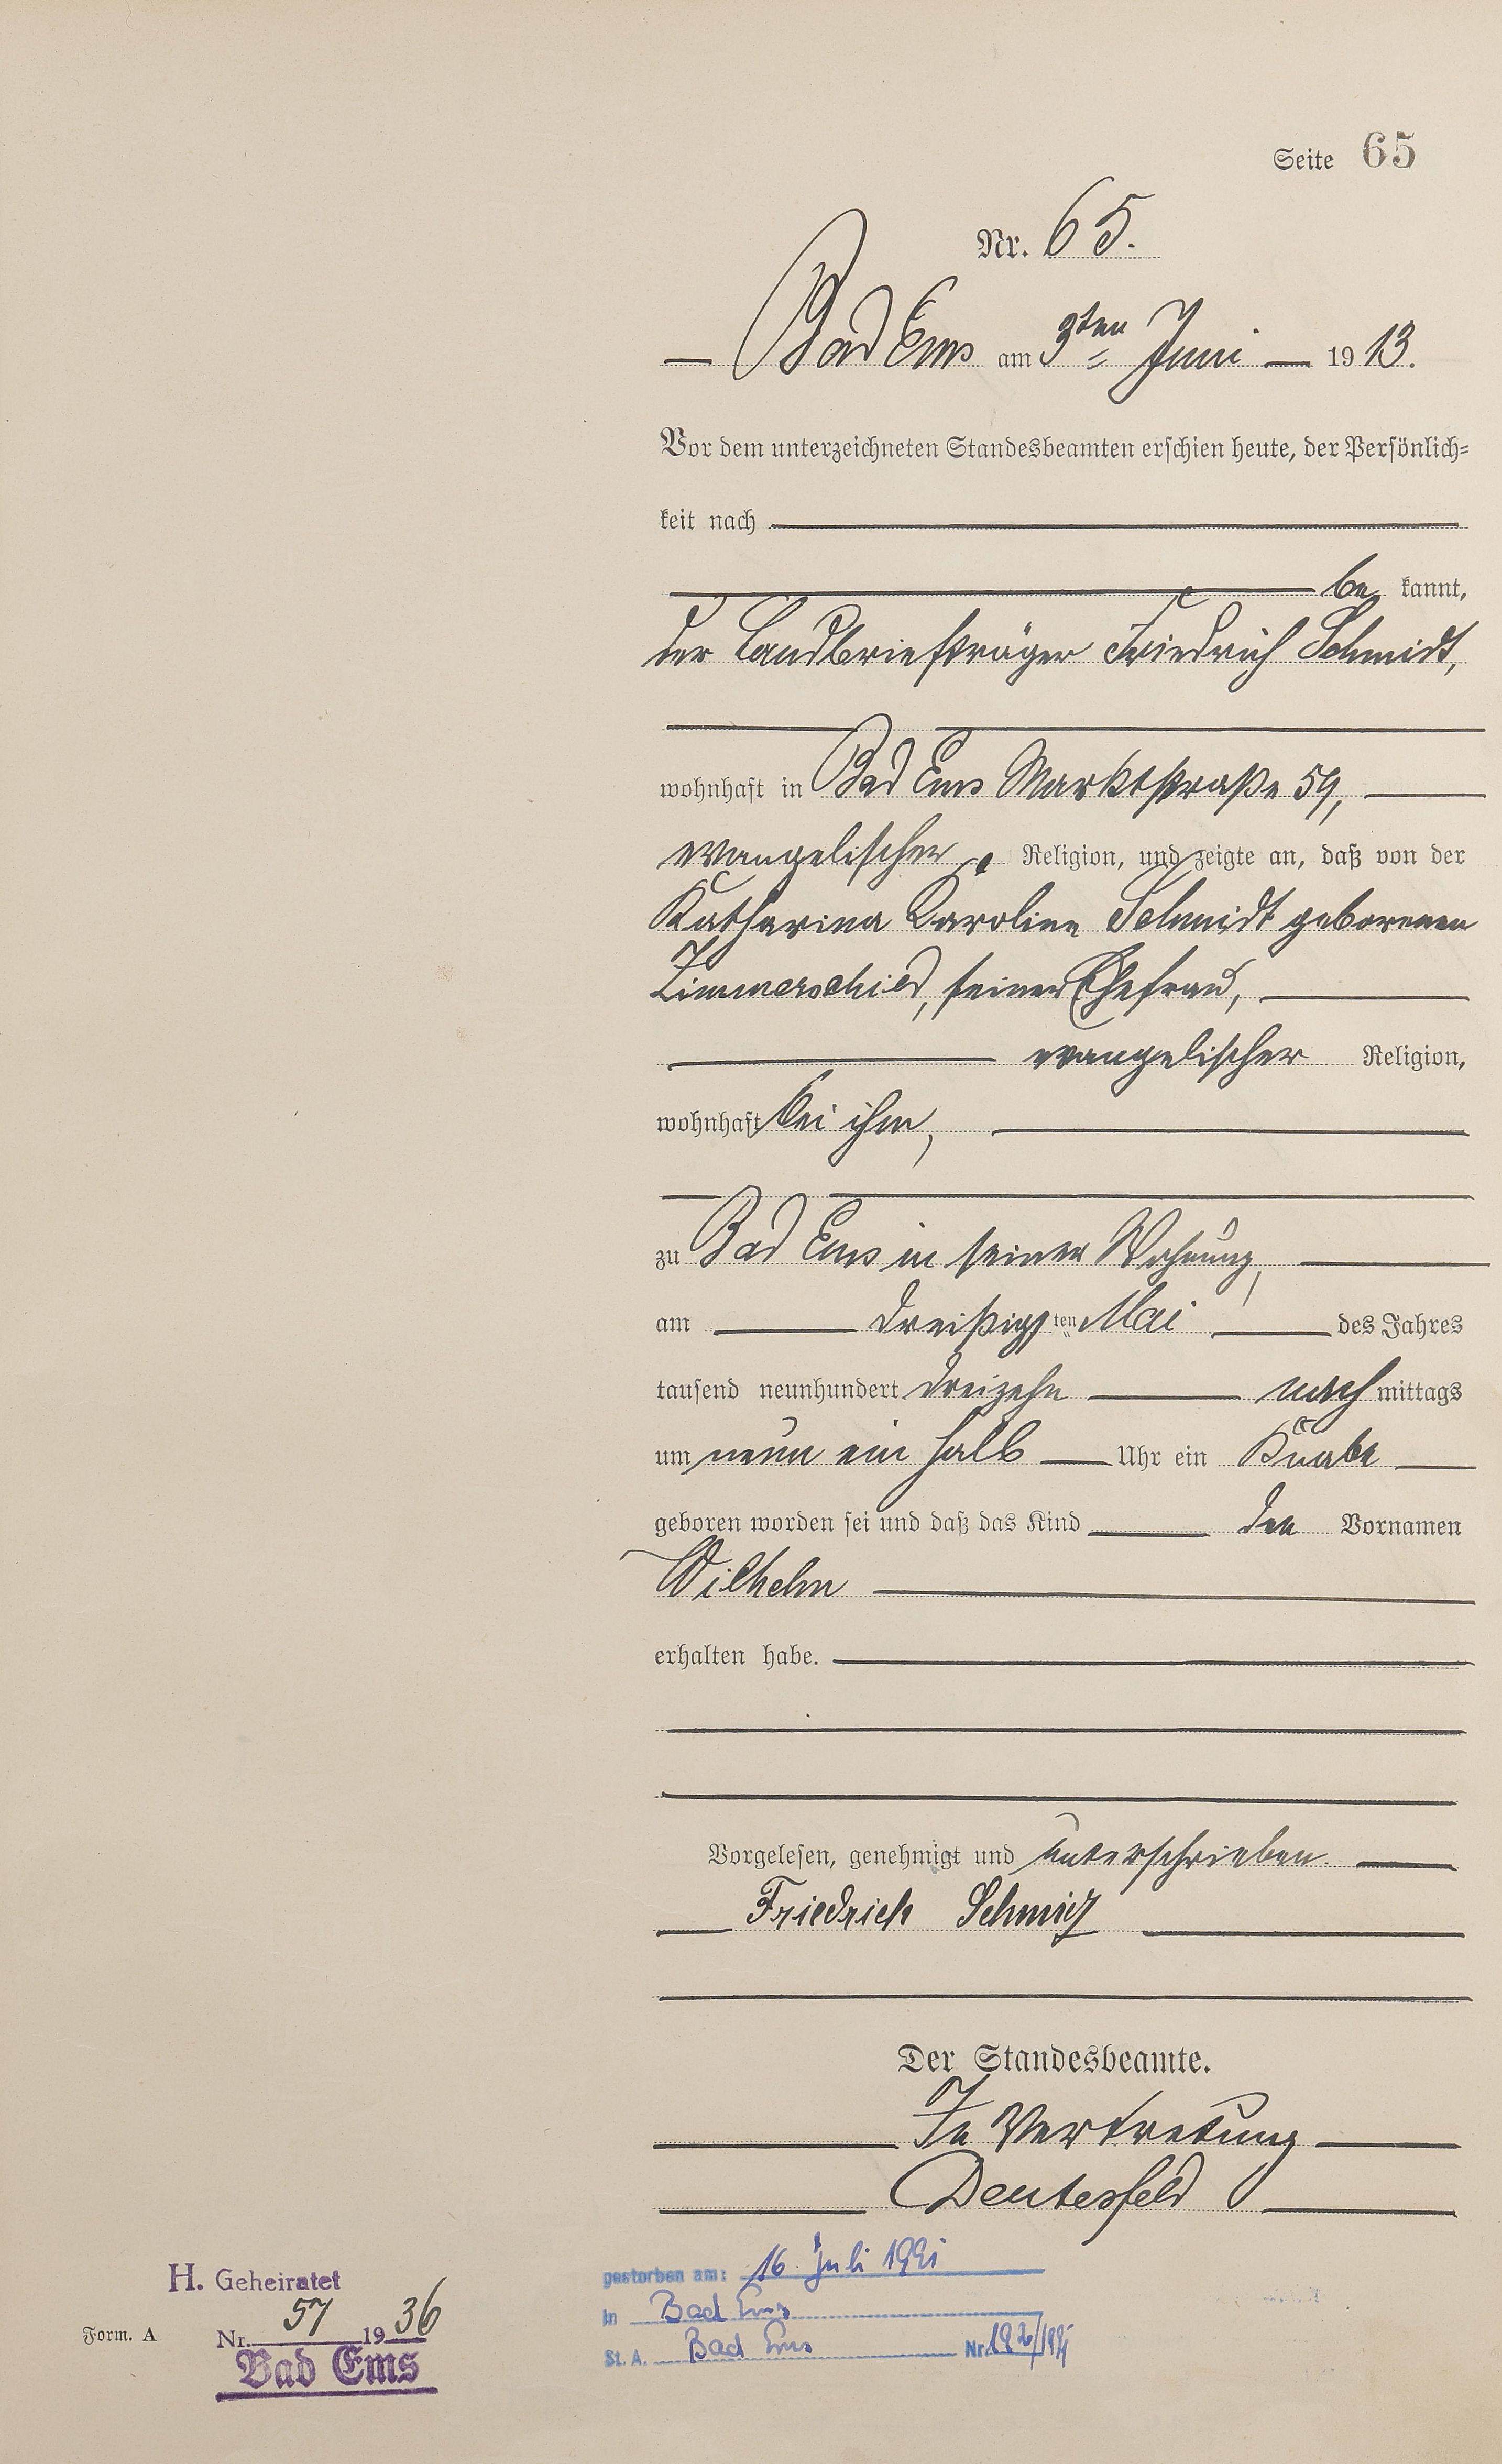 Seite 65
Nr. 65.
Bad Ems am 3ten Juni 1913.
Vor dem unterzeichneten Standesbeamten erschien heute, der Persönlich=
keit nach
be kannt,
der Landbriefträger Friedrich Schmidt,
wohnhaft in Bad Ems Marktstraße 59,
evangelischer Religion, und zeigte an, daß von der
Katharina Karoline Schmidt geborenen
Zimmerschied, seiner Ehefrau,
evangelischer Religion,
wohnhaft bei ihm,
zu Bad Ems in seiner Wohnung,
am dreißigsten Mai des Jahres
tausend neunhundert dreizehn nachmittags
um neun ein halb Uhr ein Knabe
geboren worden sei und daß das Kind den Vornamen
Wilhelm
erhalten habe.
Vorgelesen, genehmigt und unterschrieben.
Friedrich Schmidt
Der Standesbeamte.
In Vertretung
Deutesfeld
H. Geheiratet
Nr. 57 1936
Bad Ems
Form. A
gestorben am: 16. Juli
in Bad Ems
St. A. Bad Ems Nr.